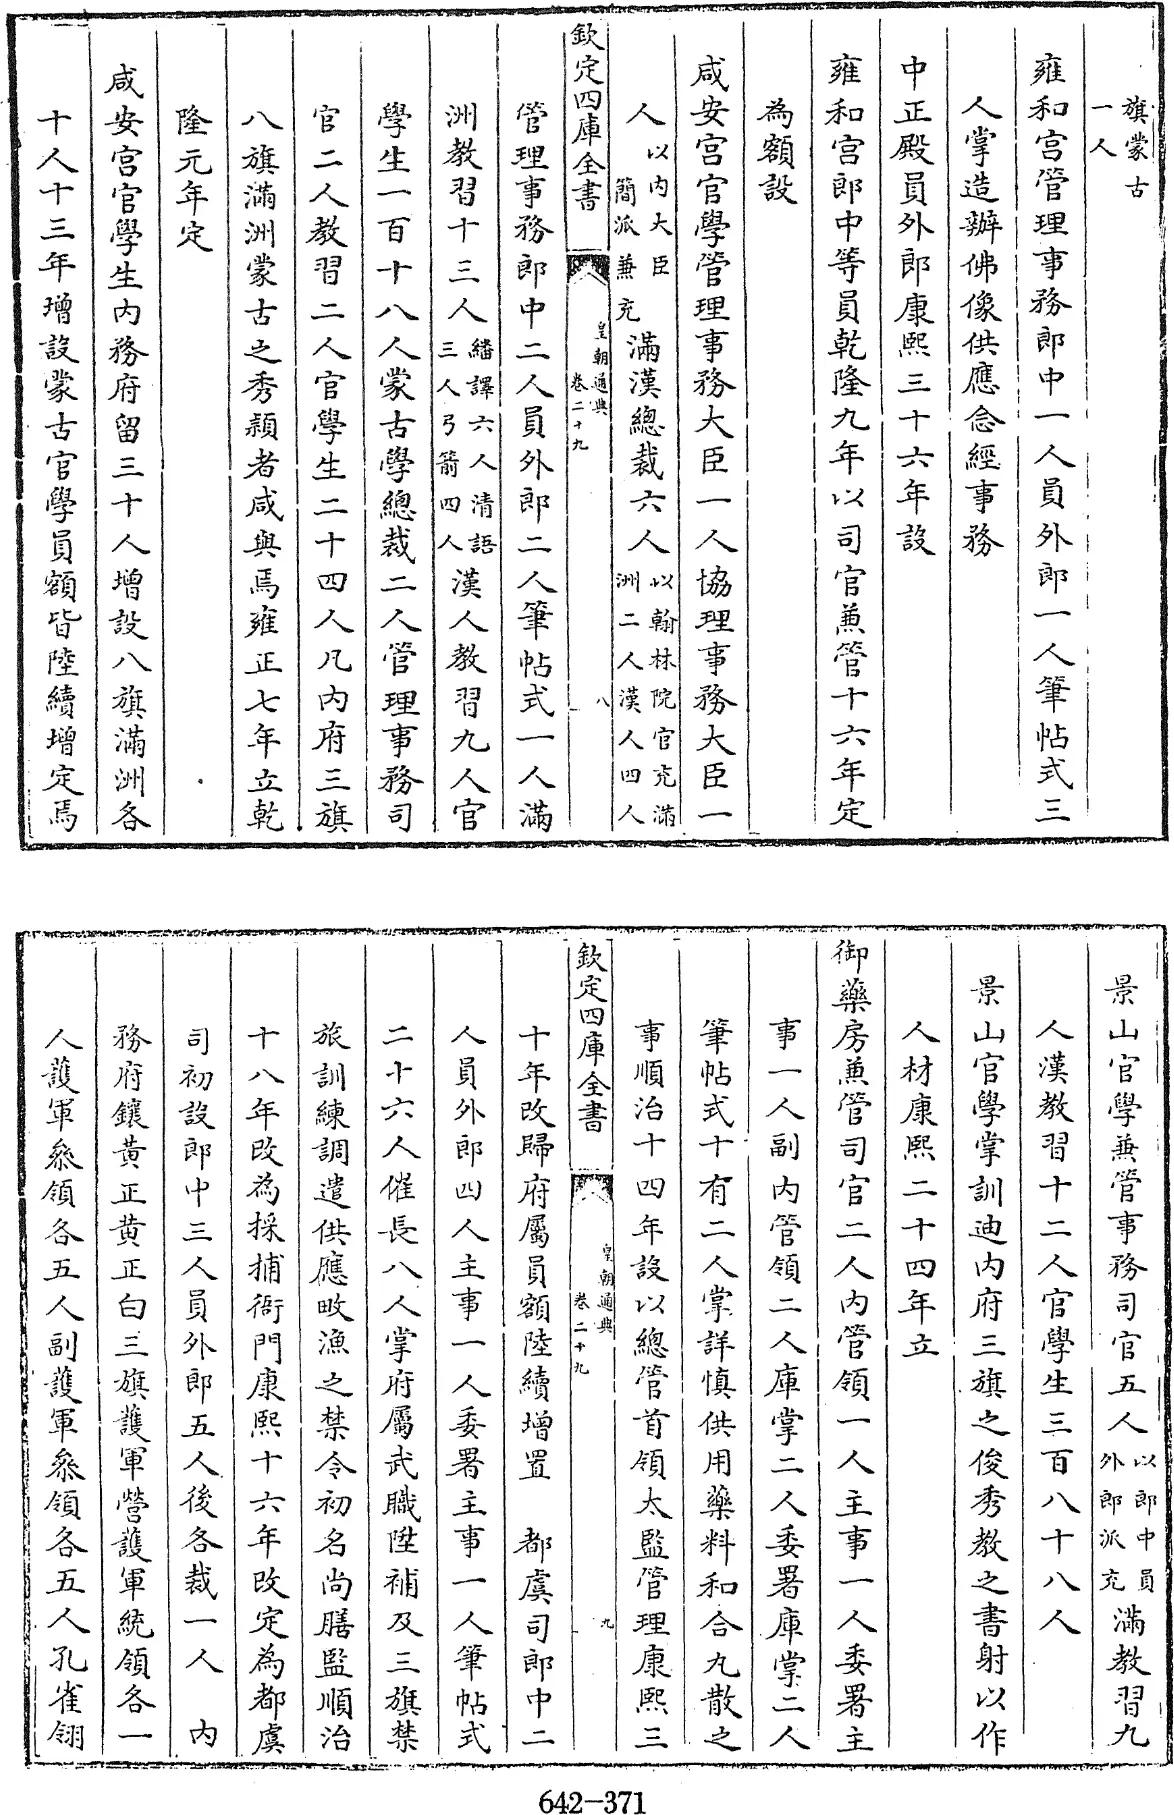 旗蒙古
一人
雍和宫管理事務郎中一人員外郎一人筆帖式三
人掌造辦佛像供應念經事務
中正殿員外郎康熙三十六年設
雍和宫郎中等員乾隆九年以司官兼管十六年定
為額設
咸安宫官學管理事務大臣一人協理事務大臣一
人以内大臣簡派兼充滿漢總裁六人以翰林院官充滿洲二人漢人四人
欽定四庫全書
皇朝通典
卷二十九
八
管理事務郎中二人員外郎二人筆帖式一人滿
洲教習十三人繙譯六人清語三人弓箭四人漢人教習九人官
學生一百十八人蒙古學總裁二人管理事務司
官二人教習二人官學生二十四人凡内府三旗
八旗滿洲蒙古之秀頴者咸與焉雍正七年立乾
隆元年定
咸安宫官學生内務府留三十人增設八旗滿洲各
十人十三年增設蒙古官學員額皆陸續增定焉
景山官學兼管事務司官五人以郎中員外郎派充滿教習九
人漢教習十二人官學生三百八十八人
景山官學掌訓迪内府三旗之俊秀教之書射以作
人材康熙二十四年立
御藥房兼管司官二人内管領一人主事一人委署主
事一人副内管領二人庫掌二人委署庫掌二人
筆帖式十有二人掌詳慎供用藥料和合丸散之
事順治十四年設以總管首領太監管理康熙三
欽定四庫全書
皇朝通典
卷二十九
九
十年改歸府屬員額陸續增置　都虞司郎中二
人員外郎四人主事一人委署主事一人筆帖式
二十六人催長八人掌府屬武職陞補及三旗禁
旅訓練調遣供應畋漁之禁令初名尚膳監順治
十八年改為採捕衙門康熙十六年改定為都虞
司初設郎中三人員外郎五人後各裁一人　内
務府鑲黄正黄正白三旗護軍營護軍統領各一
人護軍叅領各五人副護軍叅領各五人孔雀翎
642-371